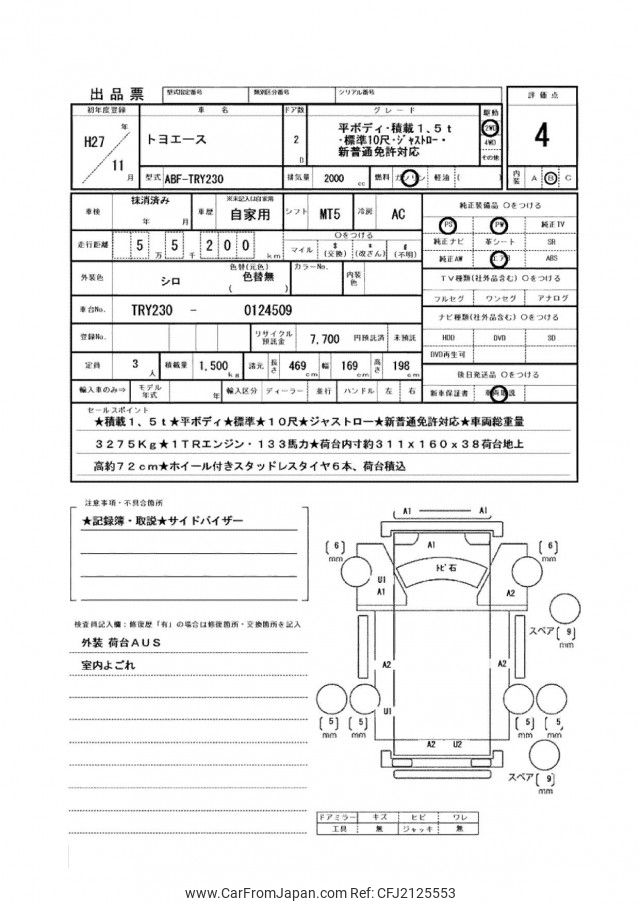 出品票 型式指定番号 類別区分番号 シリアル番号 評価点
初年度登録 車名 ドア数 グレード 駆動
H27年 11月 トヨエース 2D 平ボディ・積載1、5t 2WD 4
・標準10尺・ジャストロー・ 4WD
新普通免許対応 その他
型式 ABF-TRY230 排気量 2000cc 燃料 ガソリン 軽油 ( ) 内装 A B C
車検 抹消済み 年 月 車歴 ※未記入は自家用 自家用 シフト MT5 冷房 AC 純正装備品 〇をつける
PS PW 純正TV
走行距離 5万5千200km 〇をつける
マイル $(交換) *(改ざん) #(不明) 純正ナビ 革シート SR
純正AW エアB ABS
外装色 シロ 色替(元色) 色替無 ( ) カラーNo. 内装色
TV種類(社外品含む)〇をつける
フルセグ ワンセグ アナログ
車台No. TRY230 - 0124509
ナビ種類(社外品含む)〇をつける
登録No. リサイクル預託金 7,700 円預託済 未預託 HDD DVD SD
DVD再生可
定員 3人 積載量 1,500kg 諸元 長さ 469cm 幅 169cm 高さ 198cm 後日発送品 〇をつける
輸入車のみ⇒ モデル年式 年 輸入区分 ディーラー 並行 ハンドル 左 右 新車保証書 車両取説
セールスポイント
★積載1、5t★平ボディ★標準★10尺★ジャストロー★新普通免許対応★車両総重量
3275Kg★1TRエンジン・133馬力★荷台内寸約311x160x38荷台地上
高約72cm★ホイール付きスタッドレスタイヤ6本、荷台積込
注意事項・不具合箇所
★記録簿・取説★サイドバイザー
検査員記入欄:修復歴「有」の場合は修復箇所・交換箇所を記入
外装 荷台AUS
室内よごれ
A1 A1
A1
(6)mm (6)mm
トビ石
U1
A1 A2
スペア(9)mm
A2 A2
U1
(5)mm (5)mm (5)mm (5)mm
A2 U2
スペア(9)mm
ドアミラー キズ ヒビ ワレ
工具 無 ジャッキ 無
www.CarFromJapan.com Ref: CFJ2125553